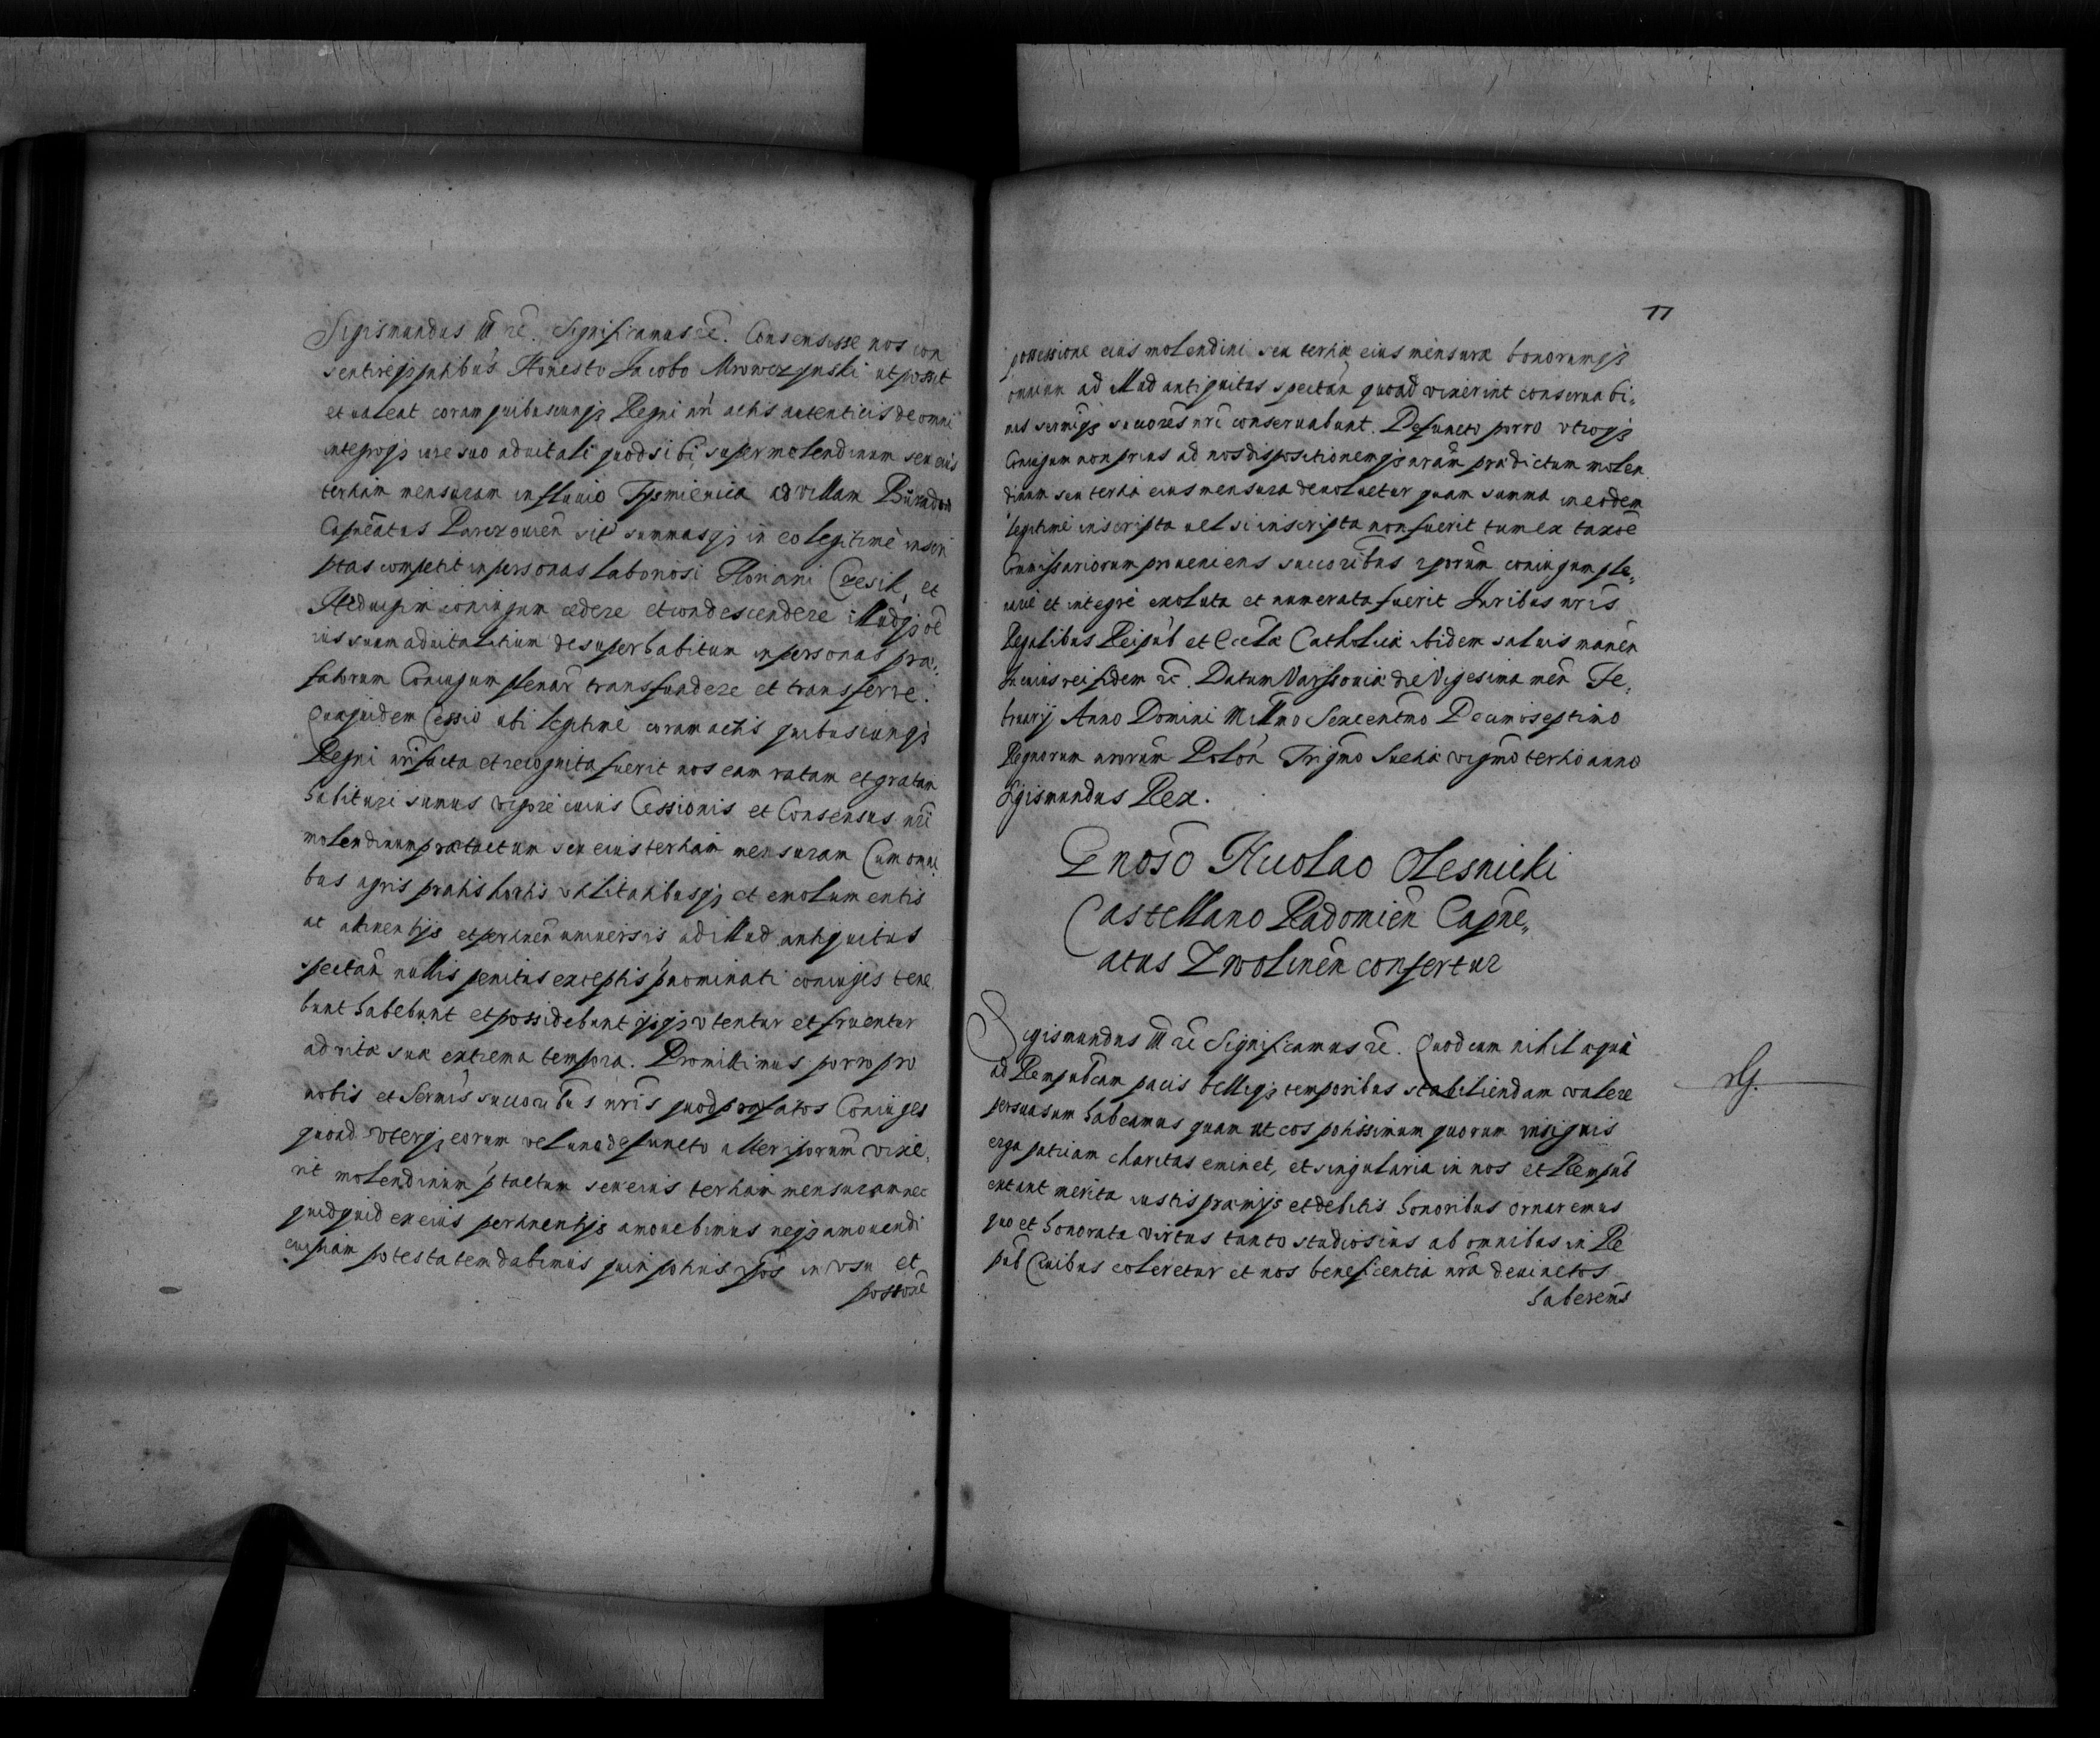 Sigismundus III rc̄. Significamus rc̄. Consensisse nos con
sentireq̨ pntibus Honesto Jacobo Mrowczynski ut possit
et valeat coram quibuscunq̨ Regni nri actis autenticis de omni
integroq̨ iure suo advitali quod sibi super molendinum seu eius
tertiam mensuram in fluvio Tysmienica ad villam
Capneatus Parczovien̄ sit̄ summasq̨ in eo legitimè inscri
ptas competit in personas laboriosi Floriani Czesik, et
Heduigim coniugum cedere et condescendere illudq̨ oē
ius suum advitalitium desuper habitum in personas præ,
fatorum Coniugum plenar̄ transfundere et transferre.
Quæquidem Cessio ubi legitimè coram actis quibuscunq̨
Regni nri facta et recognita fuerit nos eam ratam et gratam
habituri sumus vigore cuius Cessionis et Consensus nri
molendinum prætactum seu eius tertiam mensuram Cum omni,
bus agris pratis hortis utilitatibusq̨ et emolumentis
ac attinentijs et pertinen̄ universis ad illud antiquitus
spectan̄ nullis penitus exceptis pnominati coniuges tene
bunt habebunt et possidebunt ijsq̨ utentur et fruentur
ad vitæ suæ extrema tempora. Promittimus porro pro
nobis et Sermis succoribus nris quod præfatos Coniuges
quoad uterq̨ eorum vel uno defuncto alter ipsorum vixe,
rit molendinum ptactum seu eius tertiam mensuram nec
quidquid ex eius pertinentijs amovebimus neq̨ amovendi
cuipiam potestatem dabimus quin potius ipsos in usu et
possone
11
possessione eius molendini seu tertiæ eius mensuræ bonorumq̨
omnium ad illud antiquitus spectan̄ quoad vixerint conservabi,
mus sermiq̨ succores nri conservabunt. Defuncto porro utroq̨
Coniugum non prius ad nos dispositionemq̨ nram prædictum molen
dinum seu tertia eius mensura devolvetur quam summa in eodem
legitimè inscripta vel si inscripta non fuerit tum ex taxoē
Commissariorum proveniens succoribus ipsorum coniugum ple,
nariè et integrè exoluta et numerata fuerit Juribus nris
Regalibus Reipub et Eccłæ Catholicæ ibidem salvis manen̄
In cuius rei fidem rc̄. Datum Varssoviæ die Vigesima men̄ Fe,
bruarij Anno Domini Millmo Sexcentmo Decimoseptimo
Regnorum nrorum Polon̄ Trigmo Sueciæ vigmo tertio anno
Sigismundus Rex.
Gnoso Nicolao Olesnicki
Castellano Radomien̄ Capne,,
atus Zwolinen̄ confertur
Sigismundus III rc̄ Significamus rc̄. Quod cum nihil æquè
ad Rempubcam pacis belliq̨ temporibus stabiliendam valere
persuasum habeamus quam ut eos potissimum quorum insignis
erga patriam charitas eminet, et singularia in nos et Rempub̄
extant merita iustis præmijs et debitis honoribus ornaremus
quo et honorata virtus tanto studiosius ab omnibus in Re
pub̄ Civibus coleretur et nos beneficentia nra devinctos
haberems